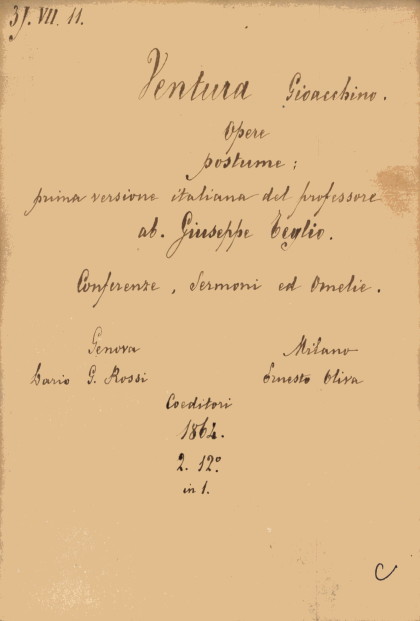 31. VII. 11.
Ventura Gioacchino.
Opere
postume;
prima versione italiana del professore
ab. Giuseppe Teglio.
Conferenze, Sermoni ed Omelie.
Genova Milano
Dario G. Rossi Ernesto Oliva
Coeditori
1862.
2. 12º
in 1.
C